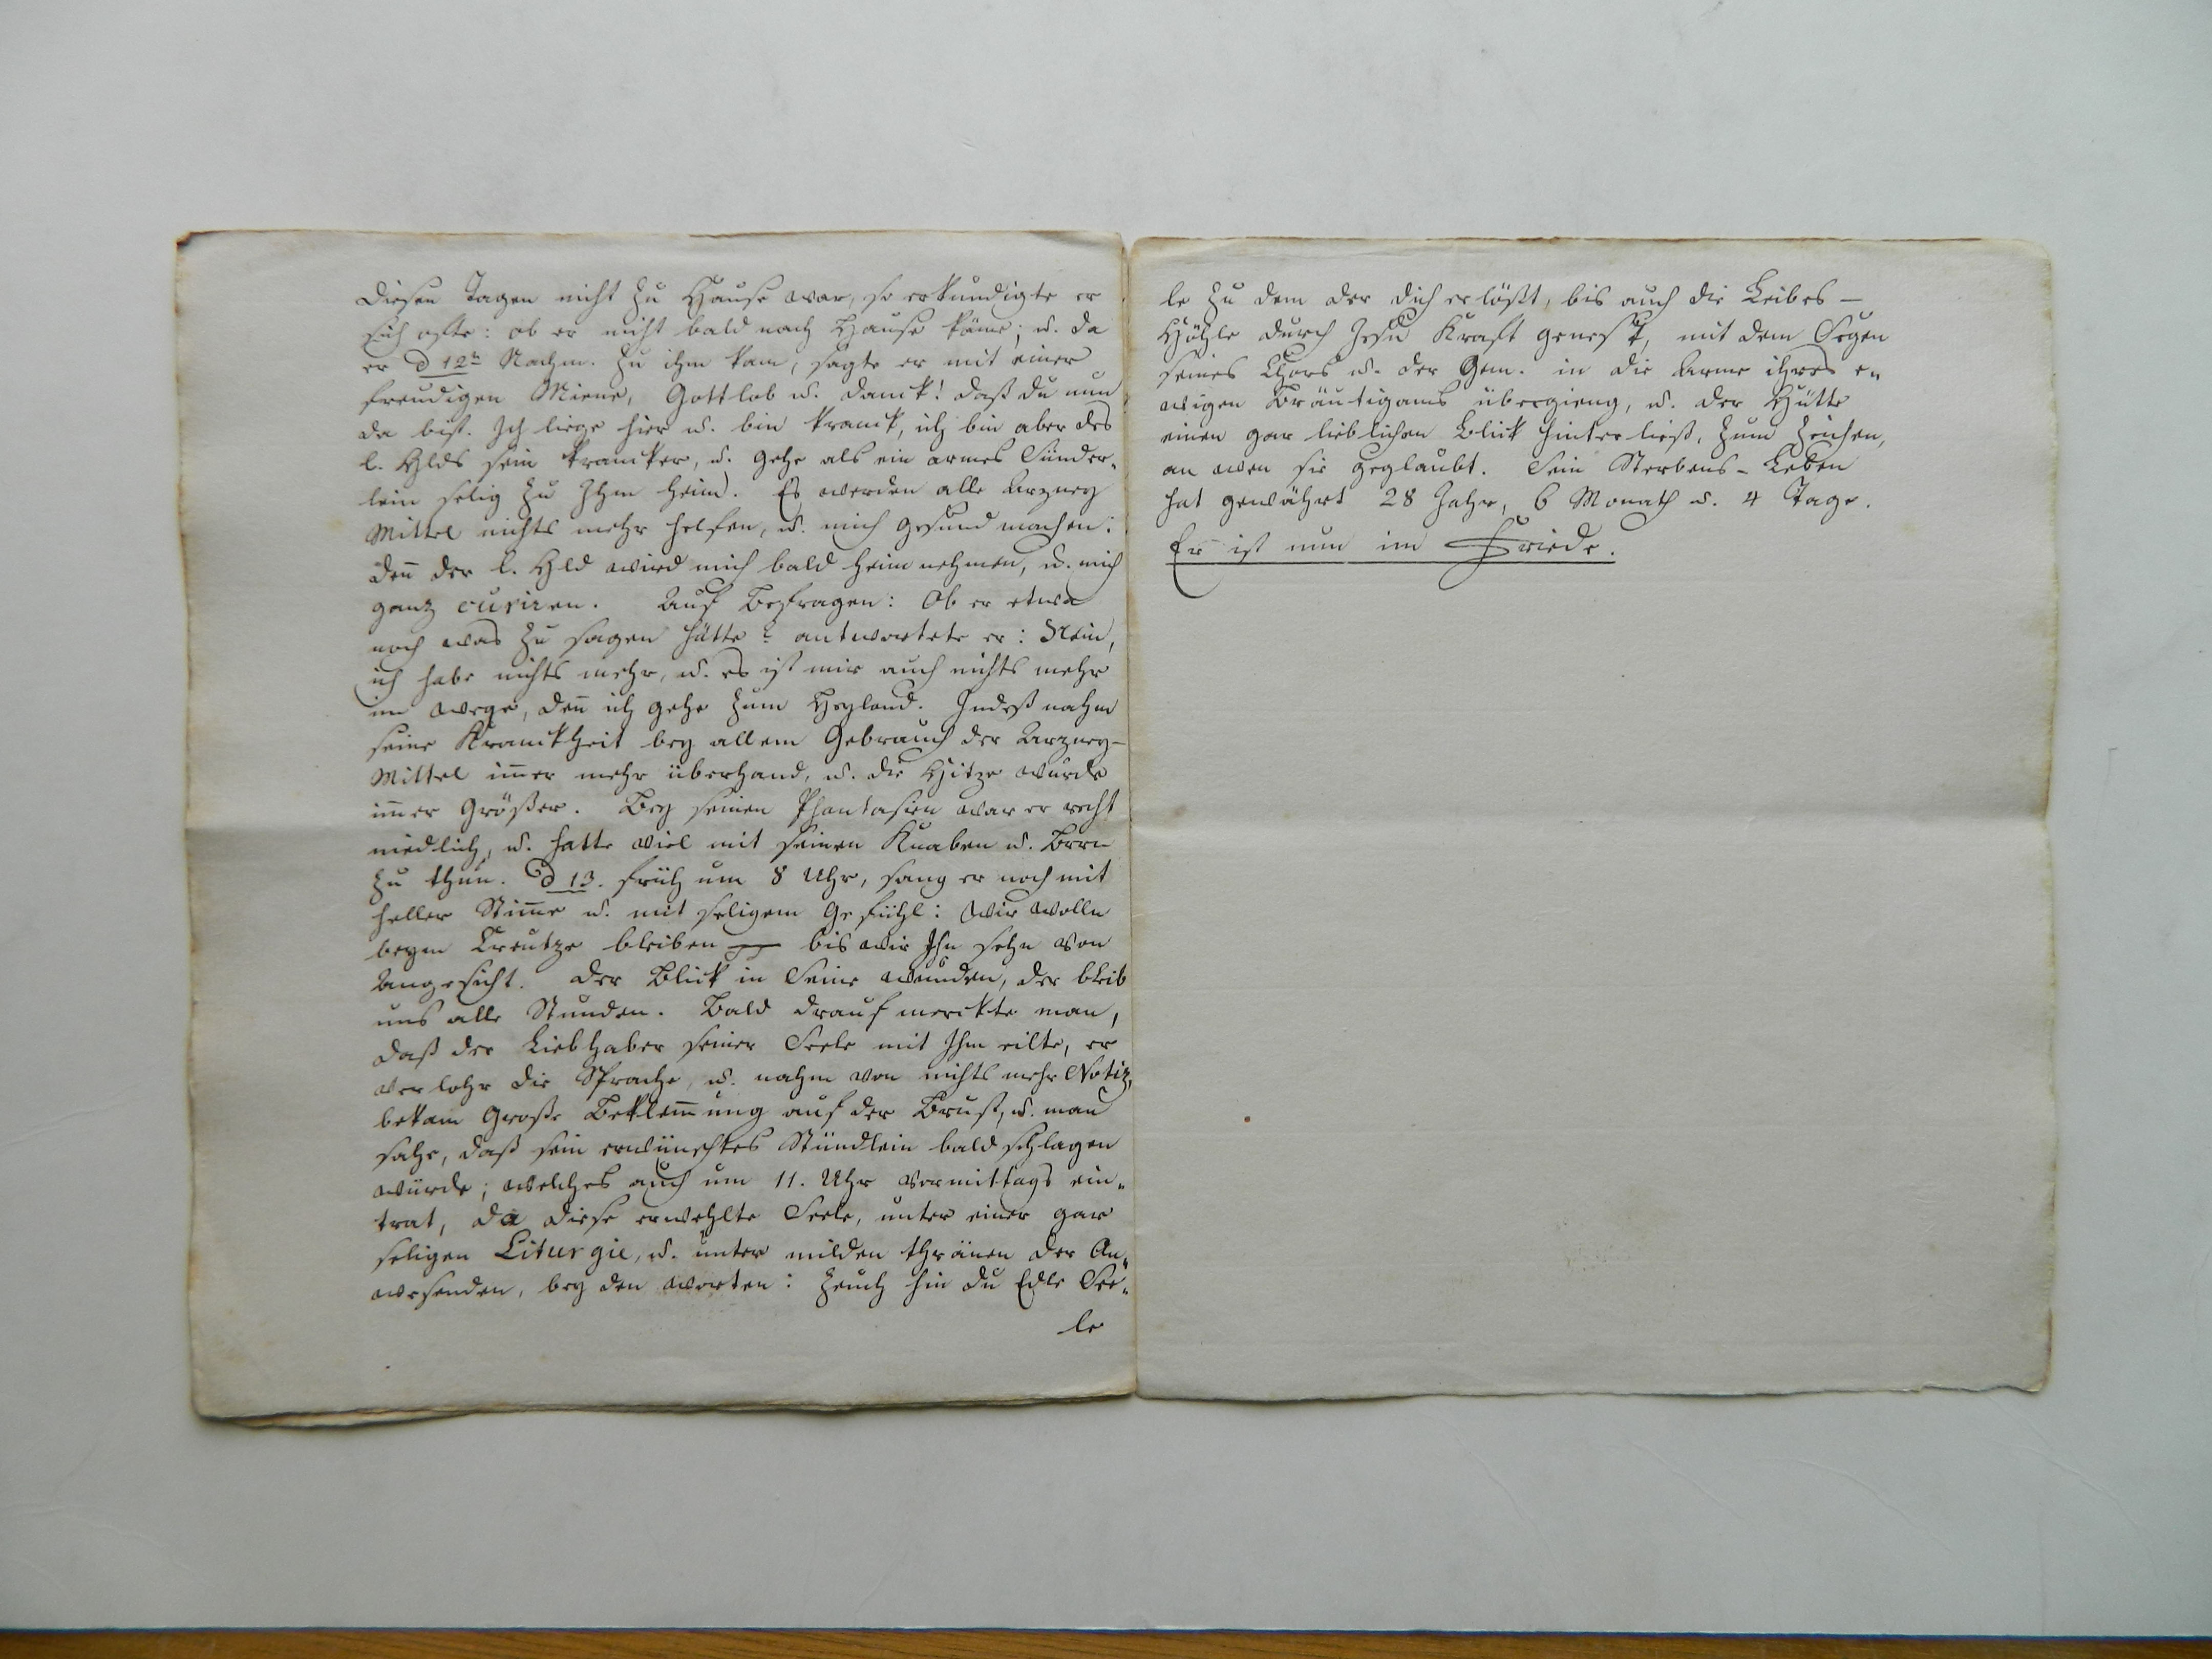 diesen Tagen nicht zu Hause war, so erkundigte er
sich ofte: ob er nicht bald nach Hause käme; u. da
er d 12n Nachm. zu ihm kam, sagte er mit einer
freudigen Miene, Gottlob u. Danck! daß du nun
da bist. Ich liege hier u. bin kranck, ich bin aber des
l. Hlds sein krancker, u. gehe als ein armes Sünder„
lein selig zu Ihm heim. Es werden alle Arzney
Mittel nichts mehr helfen, u. mich gesund machen:
den̄ der l. Hld wird mich bald heim nehmen, u. mich
ganz curiren. Auf Befragen: Ob er etwa
noch was zu sagen hätte? antwortete er: Nein,
ich habe nichts mehr, u. es ist mir auch nichts mehr
im Wege, den̄ ich gehe zum Heyland. Indeß nahm
seine Kranckheit bey allem Gebrauch der Arzney-
Mittel im̄er mehr überhand, u. die Hitze wurde
im̄er Größer. Bey seinen Phantasien war er recht
niedlich, u. hatte viel mit seinen Knaben u. Brrn
zu thun. d 13. früh um 8 Uhr, sang er noch mit
heller Stim̄e u. mit seligem Gefühl: Wir wolln
beym Creutze bleiben — bis wir Ihn sehn von
Angesicht. Der Blick in Seine Wunden, der bleib
uns alle Stunden. Bald drauf merckte man,
daß der Liebhaber seiner Seele mit Ihm eilte, er
verlohr die Sprache, u. nahm von nichts mehr Notiz,
bekam Große Beklem̄ung auf der Brust, u. man
sahe, daß sein erwünschtes Stündlein bald schlagen
würde; welches auch um 11. Uhr Vormittags ein„
trat, da diese erwehlte Seele, unter einer gar
seligen Liturgie, u. unter milden thränen der An„
wesenden, bey den Worten: Zeuch hin du Edle See„
le
le zu dem der dich erlößt, bis auch die Leibes-
Höhle durch Jesu Kraft genest, mit dem Segen
seines Chors u. der Gem. in die Arme ihres e„
wigen Bräutigams übergieng, u. der Hütte
einen gar lieblichen Blick hinterließ, zum Zeichen,
an wen sie geglaubt. Sein Sterbens-Leben
hat gewährt 28 Jahr, 6 Monath u. 4 Tage.
Er ist nun im Friede.